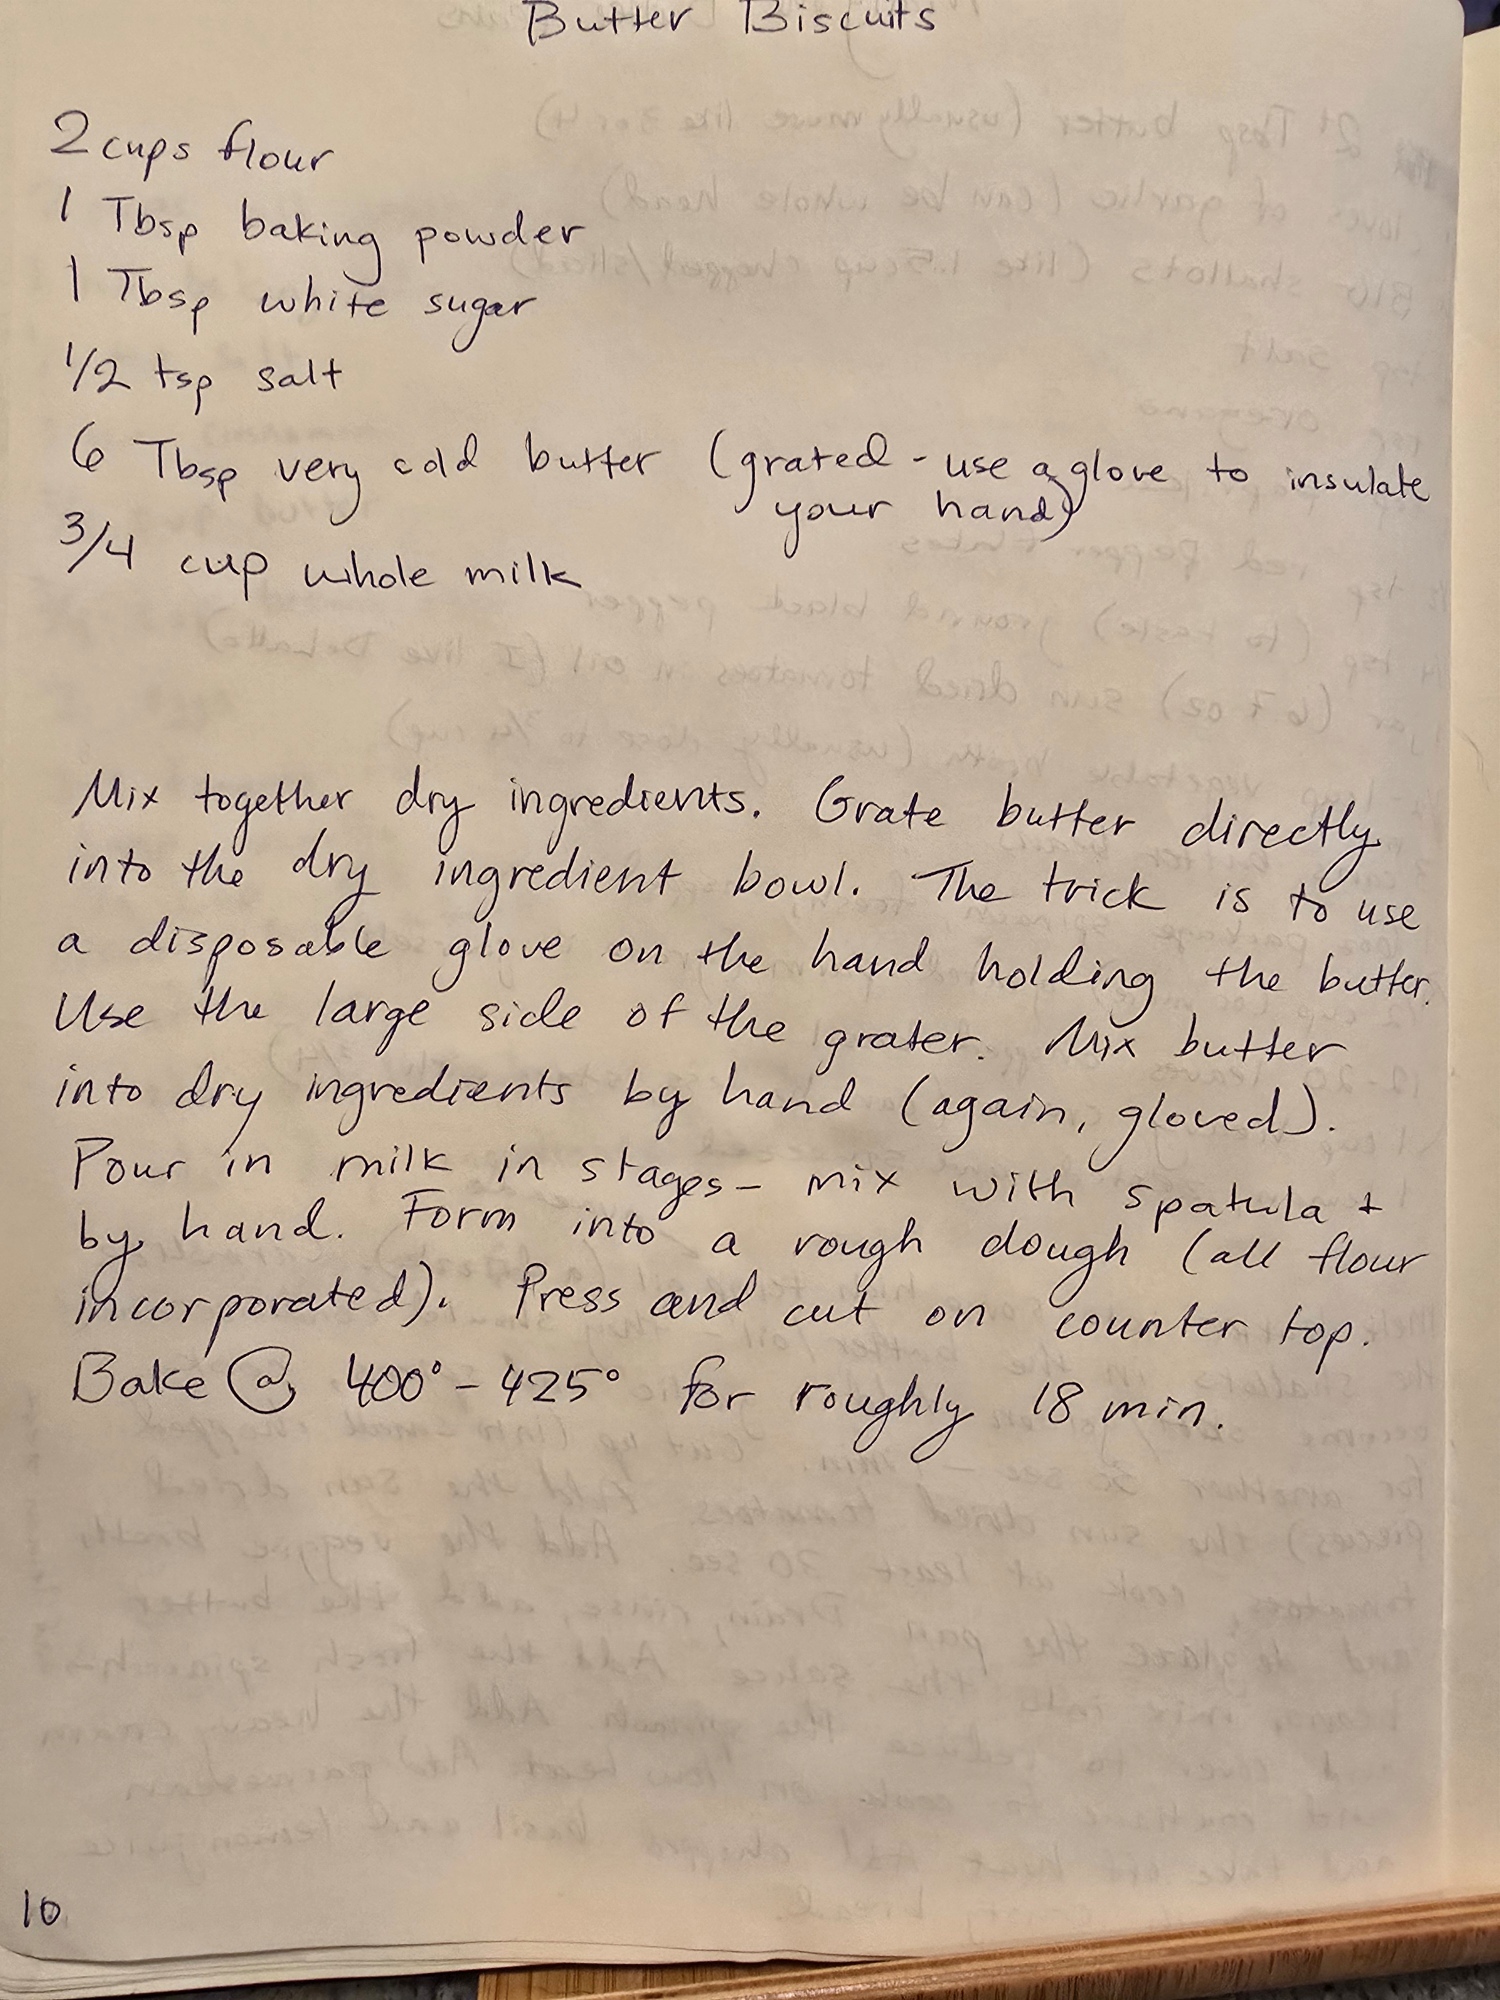 Butter Biscuits
2 cups flour
1 Tbsp baking powder
1 Tbsp white sugar
1/2 tsp salt
6 Tbsp very cold butter (grated - use a glove to insulate
your hand)
3/4 cup whole milk
Mix together dry ingredients. Grate butter directly
into the dry ingredient bowl. The trick is to use
a disposable glove on the hand holding the butter.
Use the large side of the grater. Mix butter
into dry ingredients by hand (again, gloved).
Pour in milk in stages - mix with spatula +
by hand. Form into a rough dough (all flour
incorporated). Press and cut on counter top.
Bake @ 400° - 425° for roughly 18 min.
10